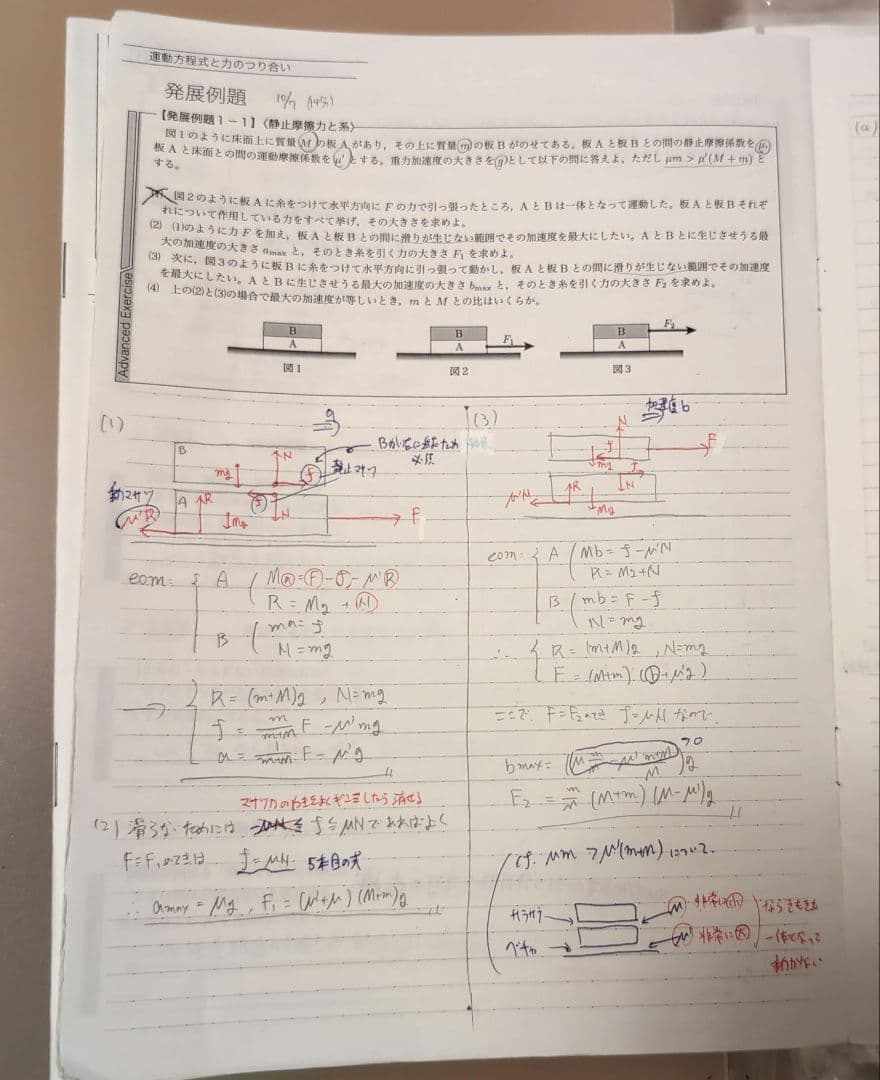 運動方程式と力のつり合い
発展例題 10/7 (14分)
【発展例題1－1】〈静止摩擦力と系〉
図1のように床面上に質量Mの板Aがあり，その上に質量mの板Bがのせてある。板Aと板Bとの間の静止摩擦係数をμ，
板Aと床面との間の運動摩擦係数をμ'とする。重力加速度の大きさをgとして以下の問に答えよ。ただし μm > μ'(M+m) と
する。
図2のように板Aに糸をつけて水平方向にFの力で引っ張ったところ，AとBは一体となって運動した。板Aと板Bそれぞ
れについて作用している力をすべて挙げ，その大きさを求めよ。
(2) (1)のように力Fを加え，板Aと板Bとの間に滑りが生じない範囲でその加速度を最大にしたい。AとBとに生じさせうる最
大の加速度の大きさ amax と，そのとき糸を引く力の大きさ F₁ を求めよ。
(3) 次に，図3のように板Bに糸をつけて水平方向に引っ張って動かし，板Aと板Bとの間に滑りが生じない範囲でその加速度
を最大にしたい。AとBに生じさせうる最大の加速度の大きさ bmax と，そのとき糸を引く力の大きさ F₂ を求めよ。
(4) 上の(2)と(3)の場合で最大の加速度が等しいとき，mとMとの比はいくらか。
Advanced Exercise
B
A
図1
B
A
F₁
図2
B
A
F₂
図3
(1)
B
mg
N
f
Bが右に
静止マサツ
動マサツ
μ'R
A
R
f
Mg
N
F
eom:
A
Ma=F-f-μ'R
R=Mg+N
B
ma=f
N=mg
→
R=(m+M)g, N=mg
f=m/(m+M) F-μ'mg
a=1/(m+M)・F-μ'g
(2) 滑らないためには f≦μNであればよく
F=F₁のときは f=μN 5本目の式
∴ amax=μg, F₁=(μ'+μ)(M+m)g
(3)
加速度b
N
F
f
mg
f
μ'N
R
N
Mg
eom:
A
Mb=f-μ'N
R=Mg+N
B
mb=F-f
N=mg
∴
R=(m+M)g, N=mg
F=(M+m)(b+μ'g)
ここで F=F₂のとき f=μNなので
bmax=(μ m/M-μ' (m+M)/M)g
>0
F₂=m/M (M+m)(μ-μ')g
cf. μm>μ'(m+M)について.
μ 非常に小
μ' 非常に大
ならそもそも
一体となって
動かない